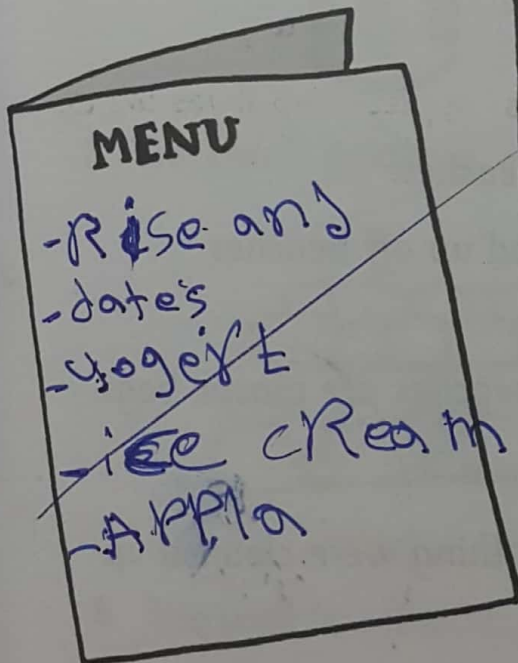 MENU
-Rise and
-dates
-yogert
-ice cream
-APPla